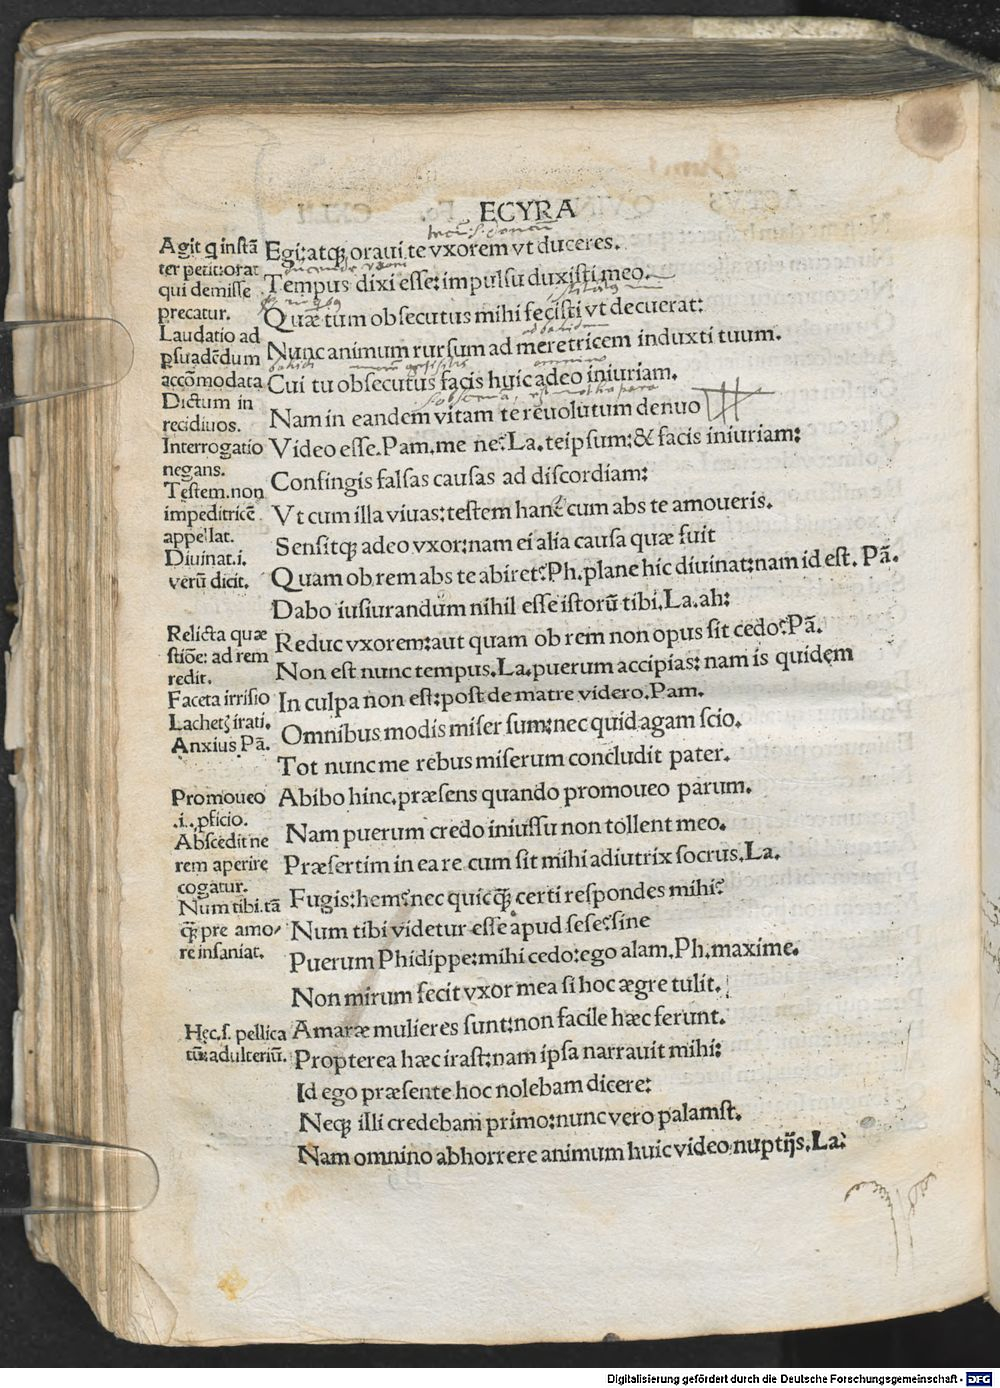 ECYRA
Egi:atq; oraui te vxorem vt duceres.
Tempus dixi esse: impulsu duxisti meo.
Quæ tum obsecutus mihi fecisti vt decuerat:
Nunc animum rursum ad meretricem induxti tuum.
Cui tu obsecutus facis huic adeo iniuriam.
Nam in eandem vitam te reuolutum denuo
Video esse. Pam. me ne? La. teipsum: & facis iniuriam:
Confingis falsas causas ad discordiam:
Vt cum illa viuas: testem hanc cum abs te amoueris.
Sensitq; adeo vxor: nam ei alia causa quæ fuit
Quam ob rem abs te abiret? Ph. plane hic diuinat: nam id est. Pā.
Dabo iusiurandum nihil esse istorū tibi. La. ah:
Reduc vxorem: aut quam ob rem non opus sit cedo? Pā.
Non est nunc tempus. La. puerum accipias: nam is quidem
In culpa non est: post de matre videro. Pam.
Omnibus modis miser sum: nec quid agam scio.
Tot nunc me rebus miserum concludit pater.
Abibo hinc. præsens quando promoueo parum.
Nam puerum credo iniussu non tollent meo.
Præsertim in ea re cum sit mihi adiutrix socrus. La.
Fugis: hem? nec quicq̄ certi respondes mihi?
Num tibi videtur esse apud sese? sine
Puerum Phidippe: mihi cedo: ego alam. Ph. maxime.
Non mirum fecit vxor mea si hoc ægre tulit.
Amaræ mulieres sunt: non facile hæc ferunt.
Propterea hæc irast: nam ipsa narrauit mihi:
Id ego præsente hoc nolebam dicere:
Neq; illi credebam primo: nunc vero palamst.
Nam omnino abhorrere animum huic video nuptijs. La:
Agit q instā
ter petit: orat
qui demisse
precatur.
Laudatio ad
psuadēdum
accōmodata
Dictum in
recidiuos.
Interrogatio
negans.
Testem. non
impeditricē
appellat.
Diuinat. i.
verū dicit.
Relicta quæ
stiōe: ad rem
redit.
Faceta irrisio
Lachetꝭ irati.
Anxius Pā.
Promoueo
.i. pficio.
Abscedit ne
rem aperire
cogatur.
Num tibi. tā
q̄ pre amo/
re insaniat.
Hęc. s. pellica
tū: adulteriū.
Digitalisierung gefördert durch die Deutsche Forschungsgemeinschaft - DFG